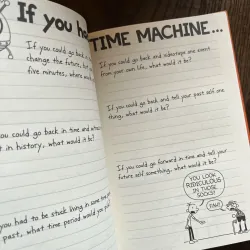 If you ha
TIME MACHINE...
If you could go back
change the future, but
five minutes, where
could go back in time and
t in history, what would it be?
you had to be stuck living in some
past, what time period would you
If you could go back and sabotage one event
from your own life, what would it be?
If you could go back and tell your past self one
thing, what would it be?
If you could go forward in time and tell your
future self something, what would it be?
YOU LOOK
RIDICULOUS
IN THOSE
SOCKS!